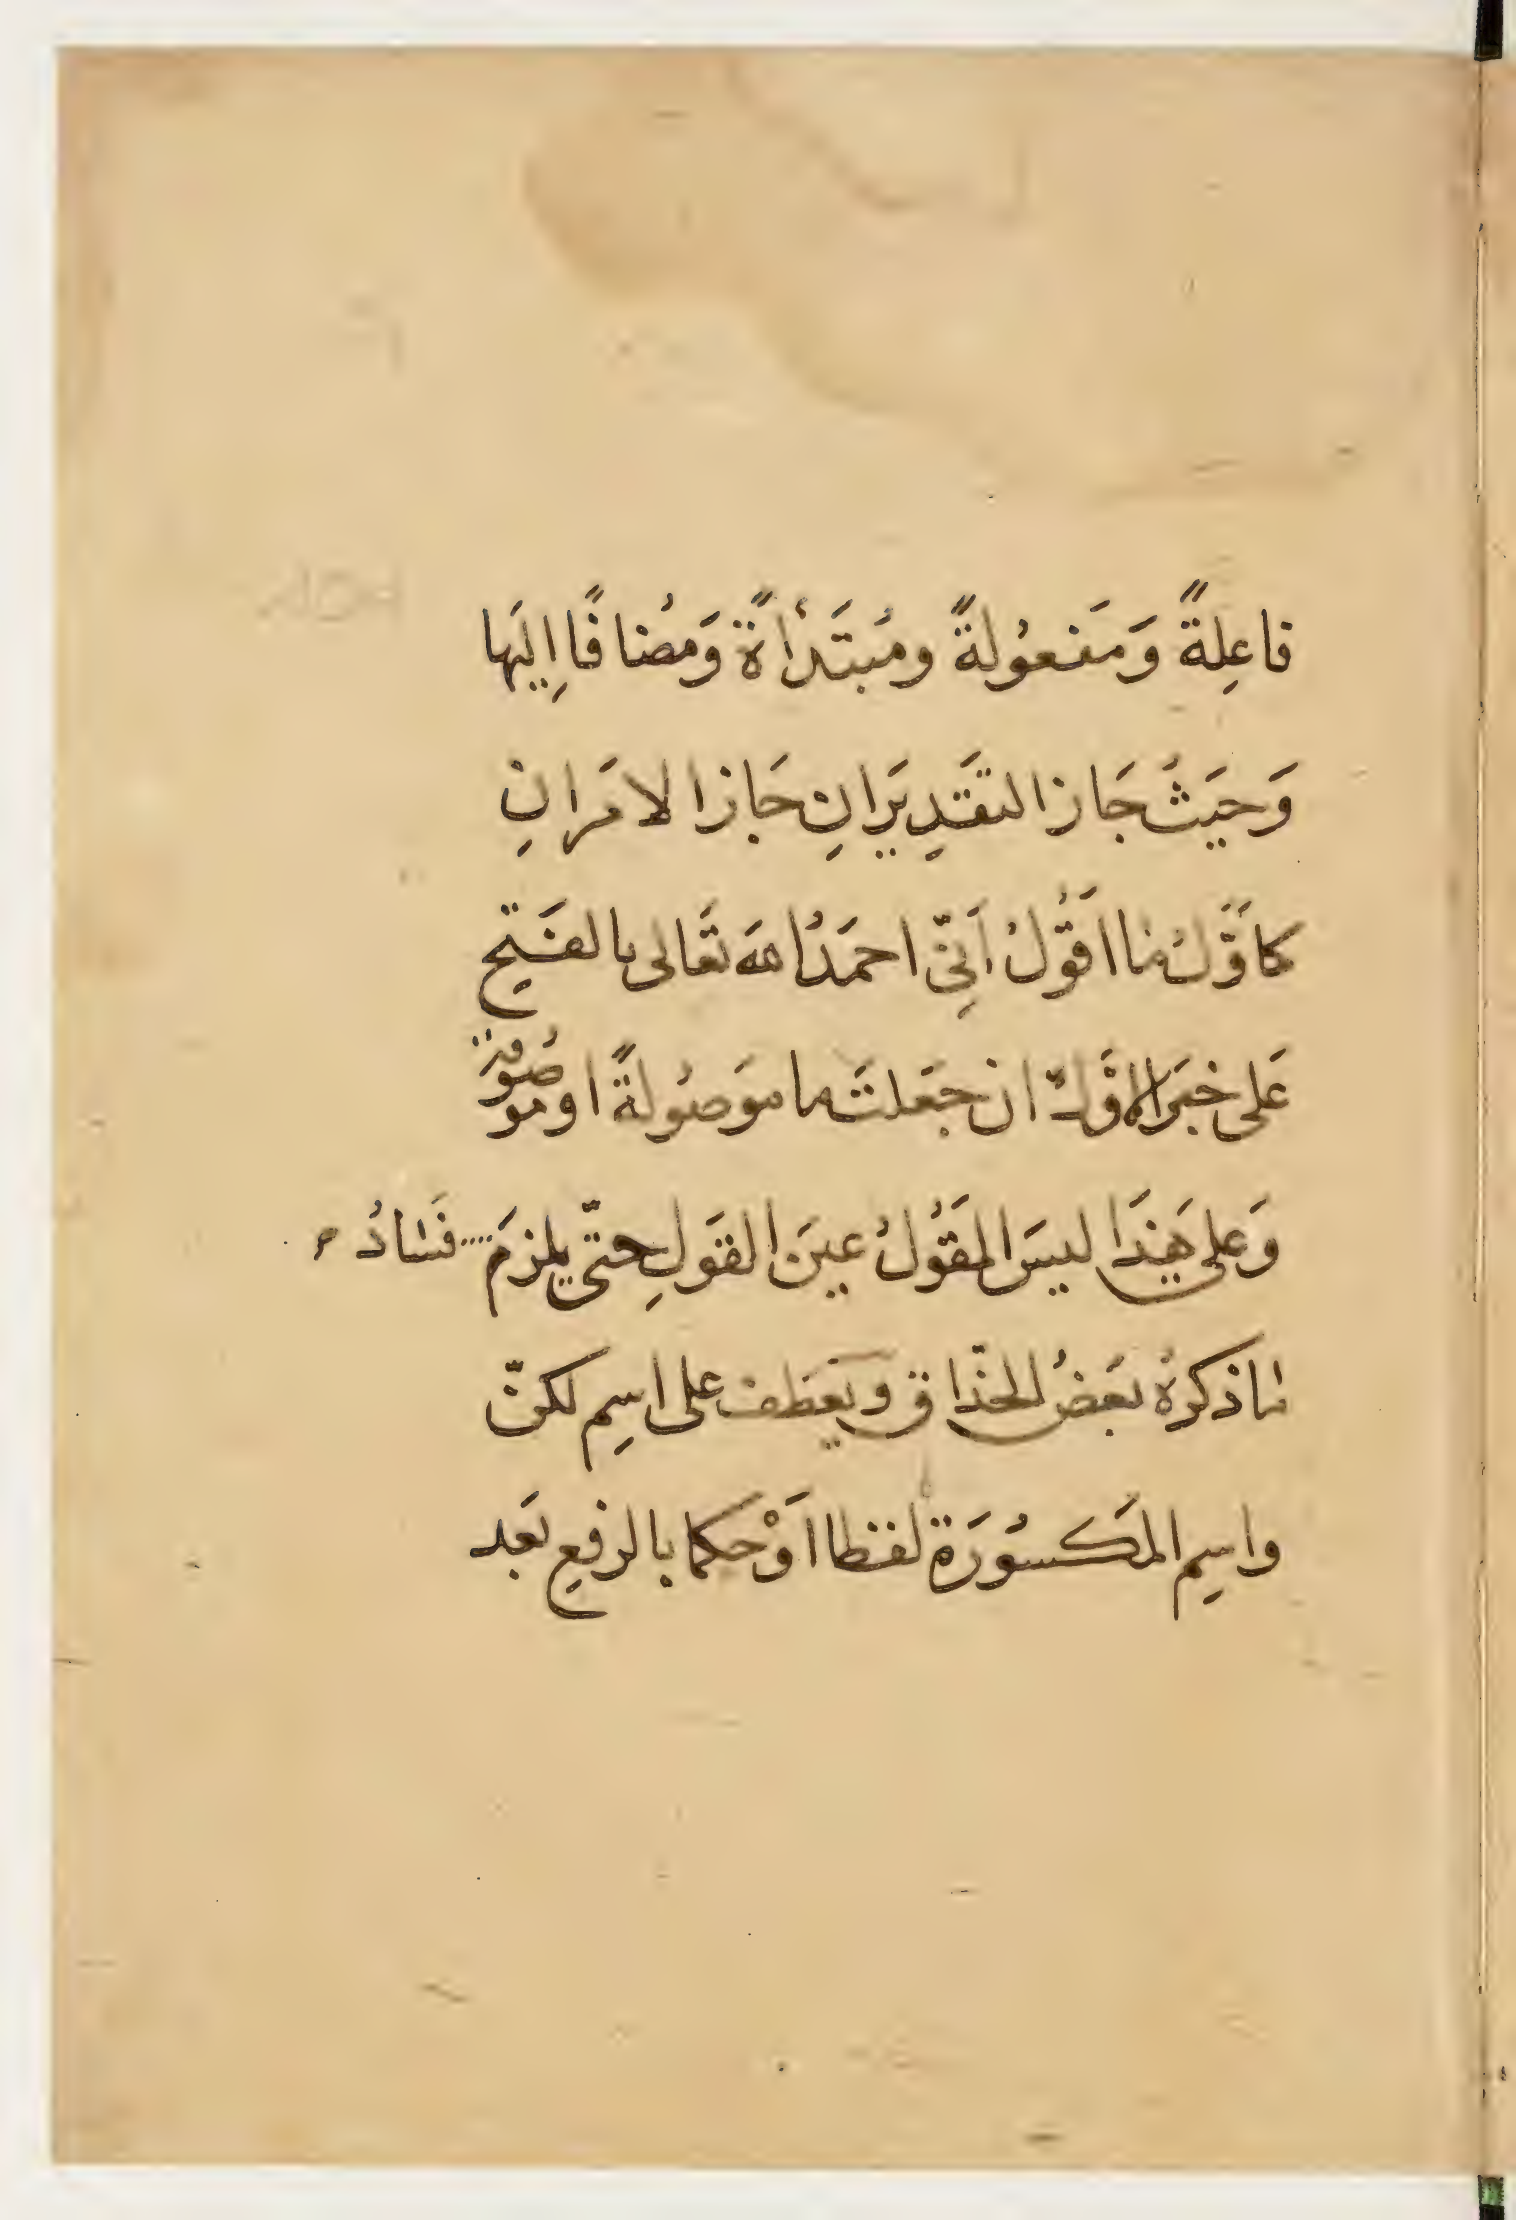 فاعِلةً وَمَفعُولةً ومُبتَدأةً وَمُضافًا اِليَها
وَحيَثُ جَاز التقَدِيرَانِ جَاز الامَرانِ
كاوَّلُ ما اقُولُ اَنِّى احمَدُ اللهَ تَعَالى بالفَتحِ
عَلى خبَر الاوَّل ان جَعَلتَ ما موَصُولةً او موصُوفة
وَعلى هَذَا ليسَ المَقُولُ عينَ القَولِ حتّى يلزمَ فَسَادُ
ماذكرهُ بعَضُ الحذّاق ويَعطف على اسِم لكنّ
واسِم المكَسُورَة لفظا اوْحكما بالرفِع بَعد